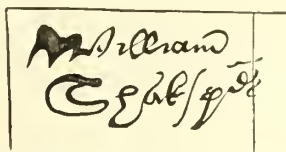 William
Shakspē